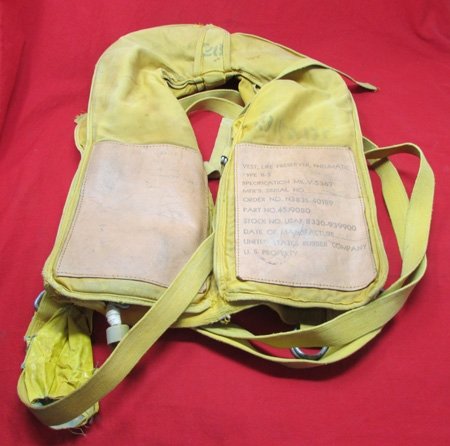 VEST, LIFE PRESERVER, PNEUMATIC
TYPE B-5
SPECIFICATION
MFR'S. SERIAL NO.
ORDER NO. N383S-90189
PART NO.
STOCK NO. USAF 8330-939900
DATE OF MANUFACTURE
UNITED STATES RUBBER COMPANY
U. S. PROPERTY